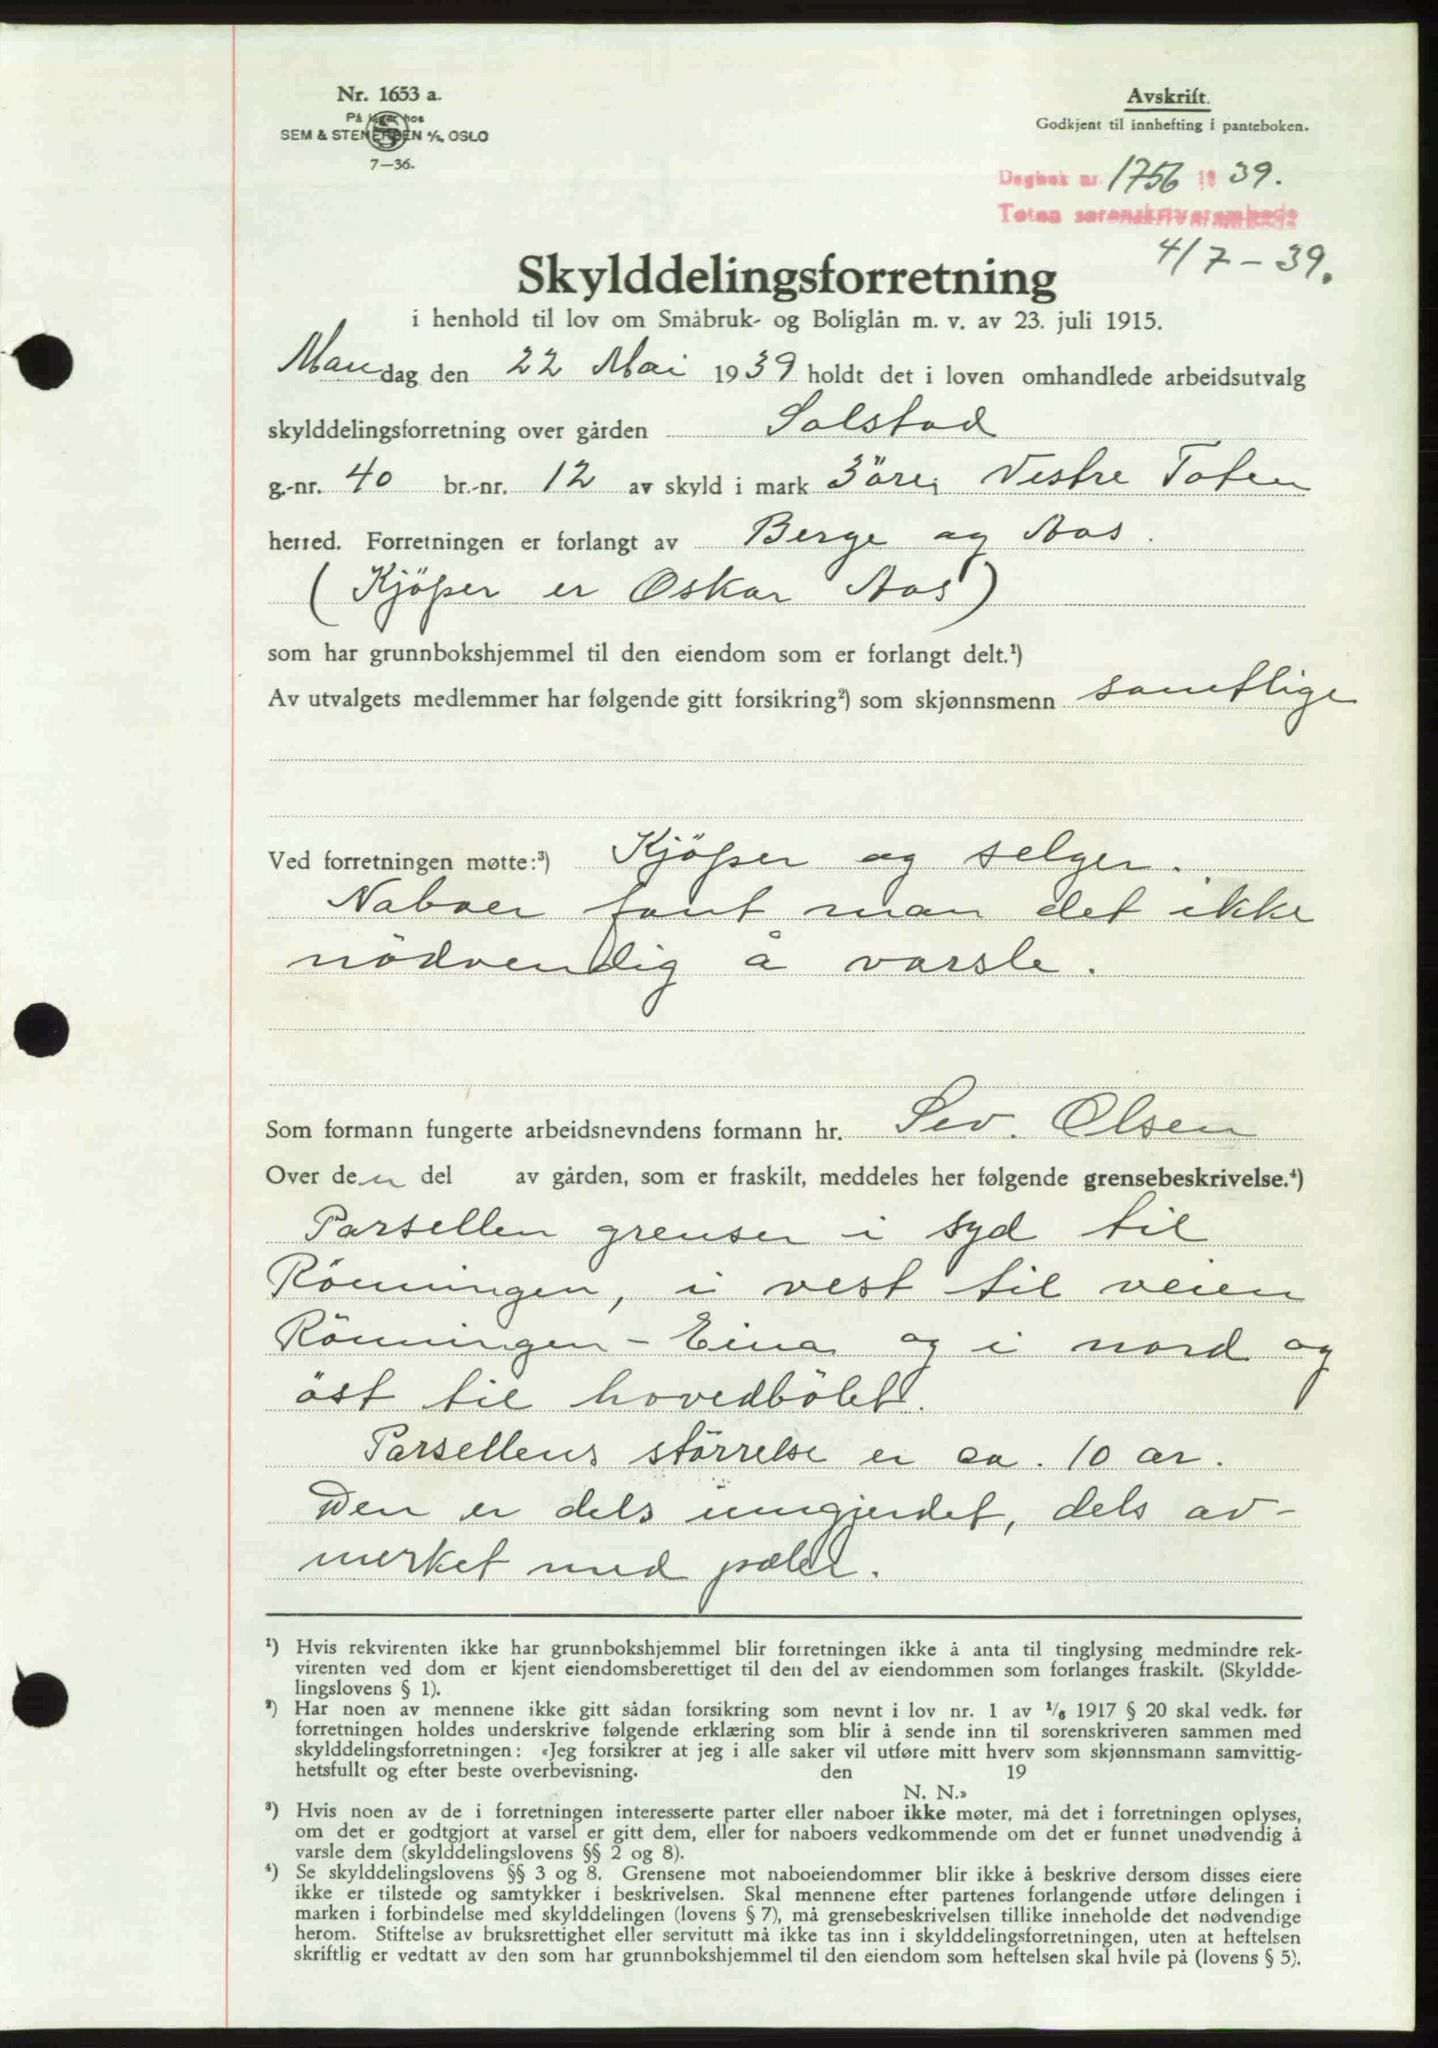 Nr. 1653 a.
På lager hos
SEM & STENERSEN A/S, OSLO
7—36.
Avskrift.
Godkjent til innhefting i panteboken.
Dagbok nr. 1756 19 39.
Toten sorenskriverembede
4/7 - 39.
Skylddelingsforretning
i henhold til lov om Småbruk- og Boliglån m. v. av 23. juli 1915.
Mandag den 22 Mai 1939 holdt det i loven omhandlede arbeidsutvalg
skylddelingsforretning over gården Solstad
g.-nr. 40 br.-nr. 12 av skyld i mark 3 öre i Vestre Toten
herred. Forretningen er forlangt av Berge og Aas.
(Kjöper er Oskar Aas)
som har grunnbokshjemmel til den eiendom som er forlangt delt.¹)
Av utvalgets medlemmer har følgende gitt forsikring²) som skjønnsmenn samtlige
Ved forretningen møtte:³) Kjöper og selger.
Naboer fant man det ikke
nödvendig å varsle.
Som formann fungerte arbeidsnevndens formann hr. Sev. Olsen
Over den del av gården, som er fraskilt, meddeles her følgende grensebeskrivelse.⁴)
Parsellen grenser i syd til
Rönningen, i vest til veien
Rönningen - Eina og i nord og
öst til hovedbölet.
Parsellens störrelse er ca. 10 ar.
Den er dels inngjerdet, dels av-
merket med pæler.
¹) Hvis rekvirenten ikke har grunnbokshjemmel blir forretningen ikke å anta til tinglysing medmindre rek-
virenten ved dom er kjent eiendomsberettiget til den del av eiendommen som forlanges fraskilt. (Skyldde-
lingslovens § 1).
²) Har noen av mennene ikke gitt sådan forsikring som nevnt i lov nr. 1 av 1/6 1917 § 20 skal vedk. før
forretningen holdes underskrive følgende erklæring som blir å sende inn til sorenskriveren sammen med
skylddelingsforretningen: «Jeg forsikrer at jeg i alle saker vil utføre mitt hverv som skjønnsmann samvittig-
hetsfullt og efter beste overbevisning. den 19
N. N.»
³) Hvis noen av de i forretningen interesserte parter eller naboer ikke møter, må det i forretningen oplyses,
om det er godtgjort at varsel er gitt dem, eller for naboers vedkommende om det er funnet unødvendig å
varsle dem (skylddelingslovens §§ 2 og 8).
⁴) Se skylddelingslovens §§ 3 og 8. Grensene mot naboeiendommer blir ikke å beskrive dersom disses eiere
ikke er tilstede og samtykker i beskrivelsen. Skal mennene efter partenes forlangende utføre delingen i
marken i forbindelse med skylddelingen (lovens § 7), må grensebeskrivelsen tillike inneholde det nødvendige
herom. Stiftelse av bruksrettighet eller servitutt må ikke tas inn i skylddelingsforretningen, uten at heftelsen
skriftlig er vedtatt av den som har grunnbokshjemmel til den eiendom som heftelsen skal hvile på (lovens § 5).